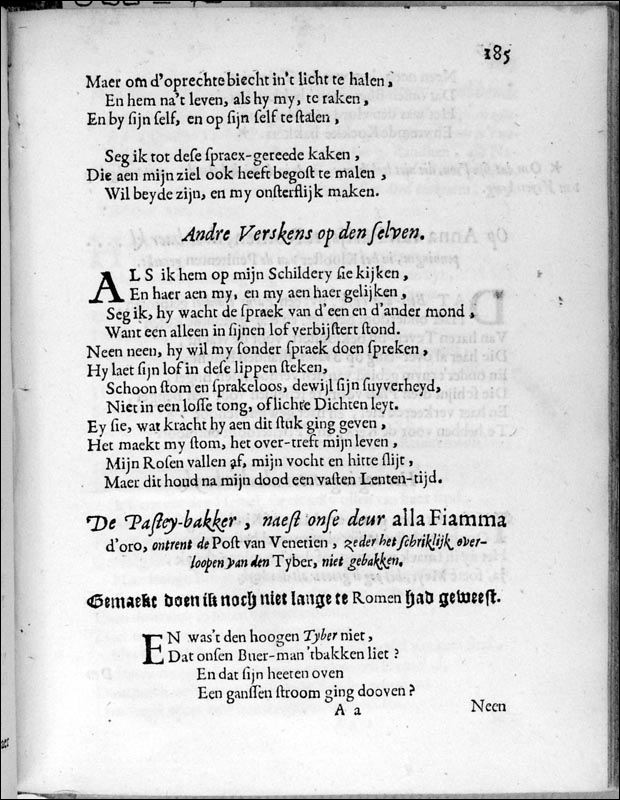 185
Maer om d'oprechte biecht in't licht te halen,
En hem na't leven, als hy my, te raken,
En by sijn self, en op sijn self te stalen,
Seg ik tot dese spraex-gereede kaken,
Die aen mijn ziel ook heeft begost te malen,
Wil beyde zijn, en my onsterflijk maken.
Andre Verskens op den selven.
ALS ik hem op mijn Schildery sie kijken,
En haer aen my, en my aen haer gelijken,
Seg ik, hy wacht de spraek van d'een en d'ander mond,
Want een alleen in sijnen lof verbijstert stond.
Neen neen, hy wil my sonder spraek doen spreken,
Hy laet sijn lof in dese lippen steken,
Schoon stom en sprakeloos, dewijl sijn suyverheyd,
Niet in een losse tong, of lichte Dichten leyt.
Ey sie, wat kracht hy aen dit stuk ging geven,
Het maekt my stom, het over-treft mijn leven,
Mijn Rosen vallen af, mijn vocht en hitte slijt,
Maer dit houd na mijn dood een vasten Lenten-tijd.
De Pastey-bakker, naest onse deur alla Fiamma
d'oro, ontrent de Post van Venetien, zeder het schriklijk over-
loopen van den Tyber, niet gebakken.
Gemaekt doen ik noch niet lange te Romen had geweest.
EN was't den hoogen Tyber niet,
Dat onsen Buer-man 'tbakken liet?
En dat sijn heeten oven
Een ganssen stroom ging dooven?
A a
Neen